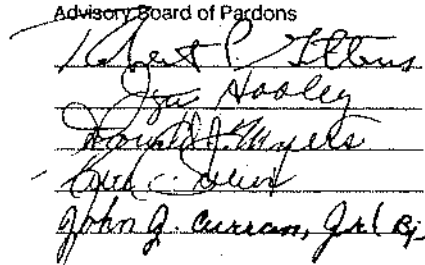 Advisory Board of Pardons
Robert P. Gittins
Hooley
Donald J. Myers
John J. Curran, Jr. (Bj